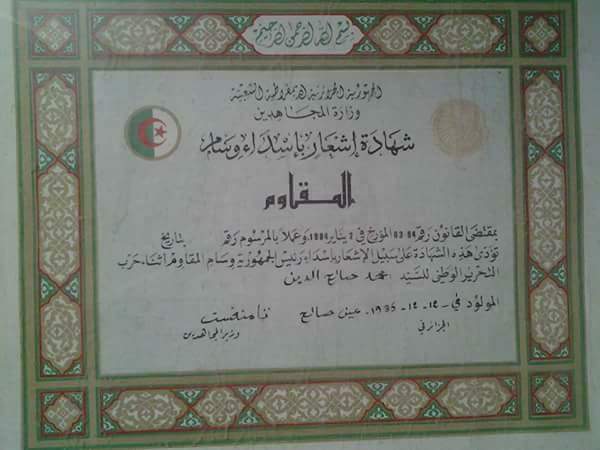 بسم الله الرحمن الرحيم
الجمهورية الجزائرية الديمقراطية الشعبية
وزارة المجاهدين
شهادة إشعار بإسداء وسام
المقاوم
بمقتضى القانون رقم 84-02 المؤرخ في 2 يناير 1984، وعملا بالمرسوم رقم بتاريخ
تؤدى هذه الشهادة على سبيل الإشعار بإسداء رئيس الجمهورية وسام المقاوم أثناء حرب
التحرير الوطني للسيد محمد صالح الدين
المولود في 1935 عين صالح
الجزائر في
وزير المجاهدين